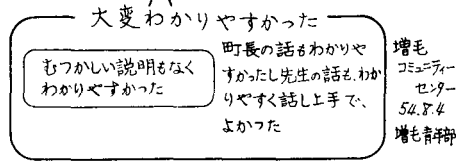 大変わかりやすかった
むつかしい説明もなく
わかりやすかった
町長の話もわかりや
すかったし先生の話も、わか
りやすく話し上手で、
よかった
増毛
コミュニティー
センター
54.8.4
増毛青年部